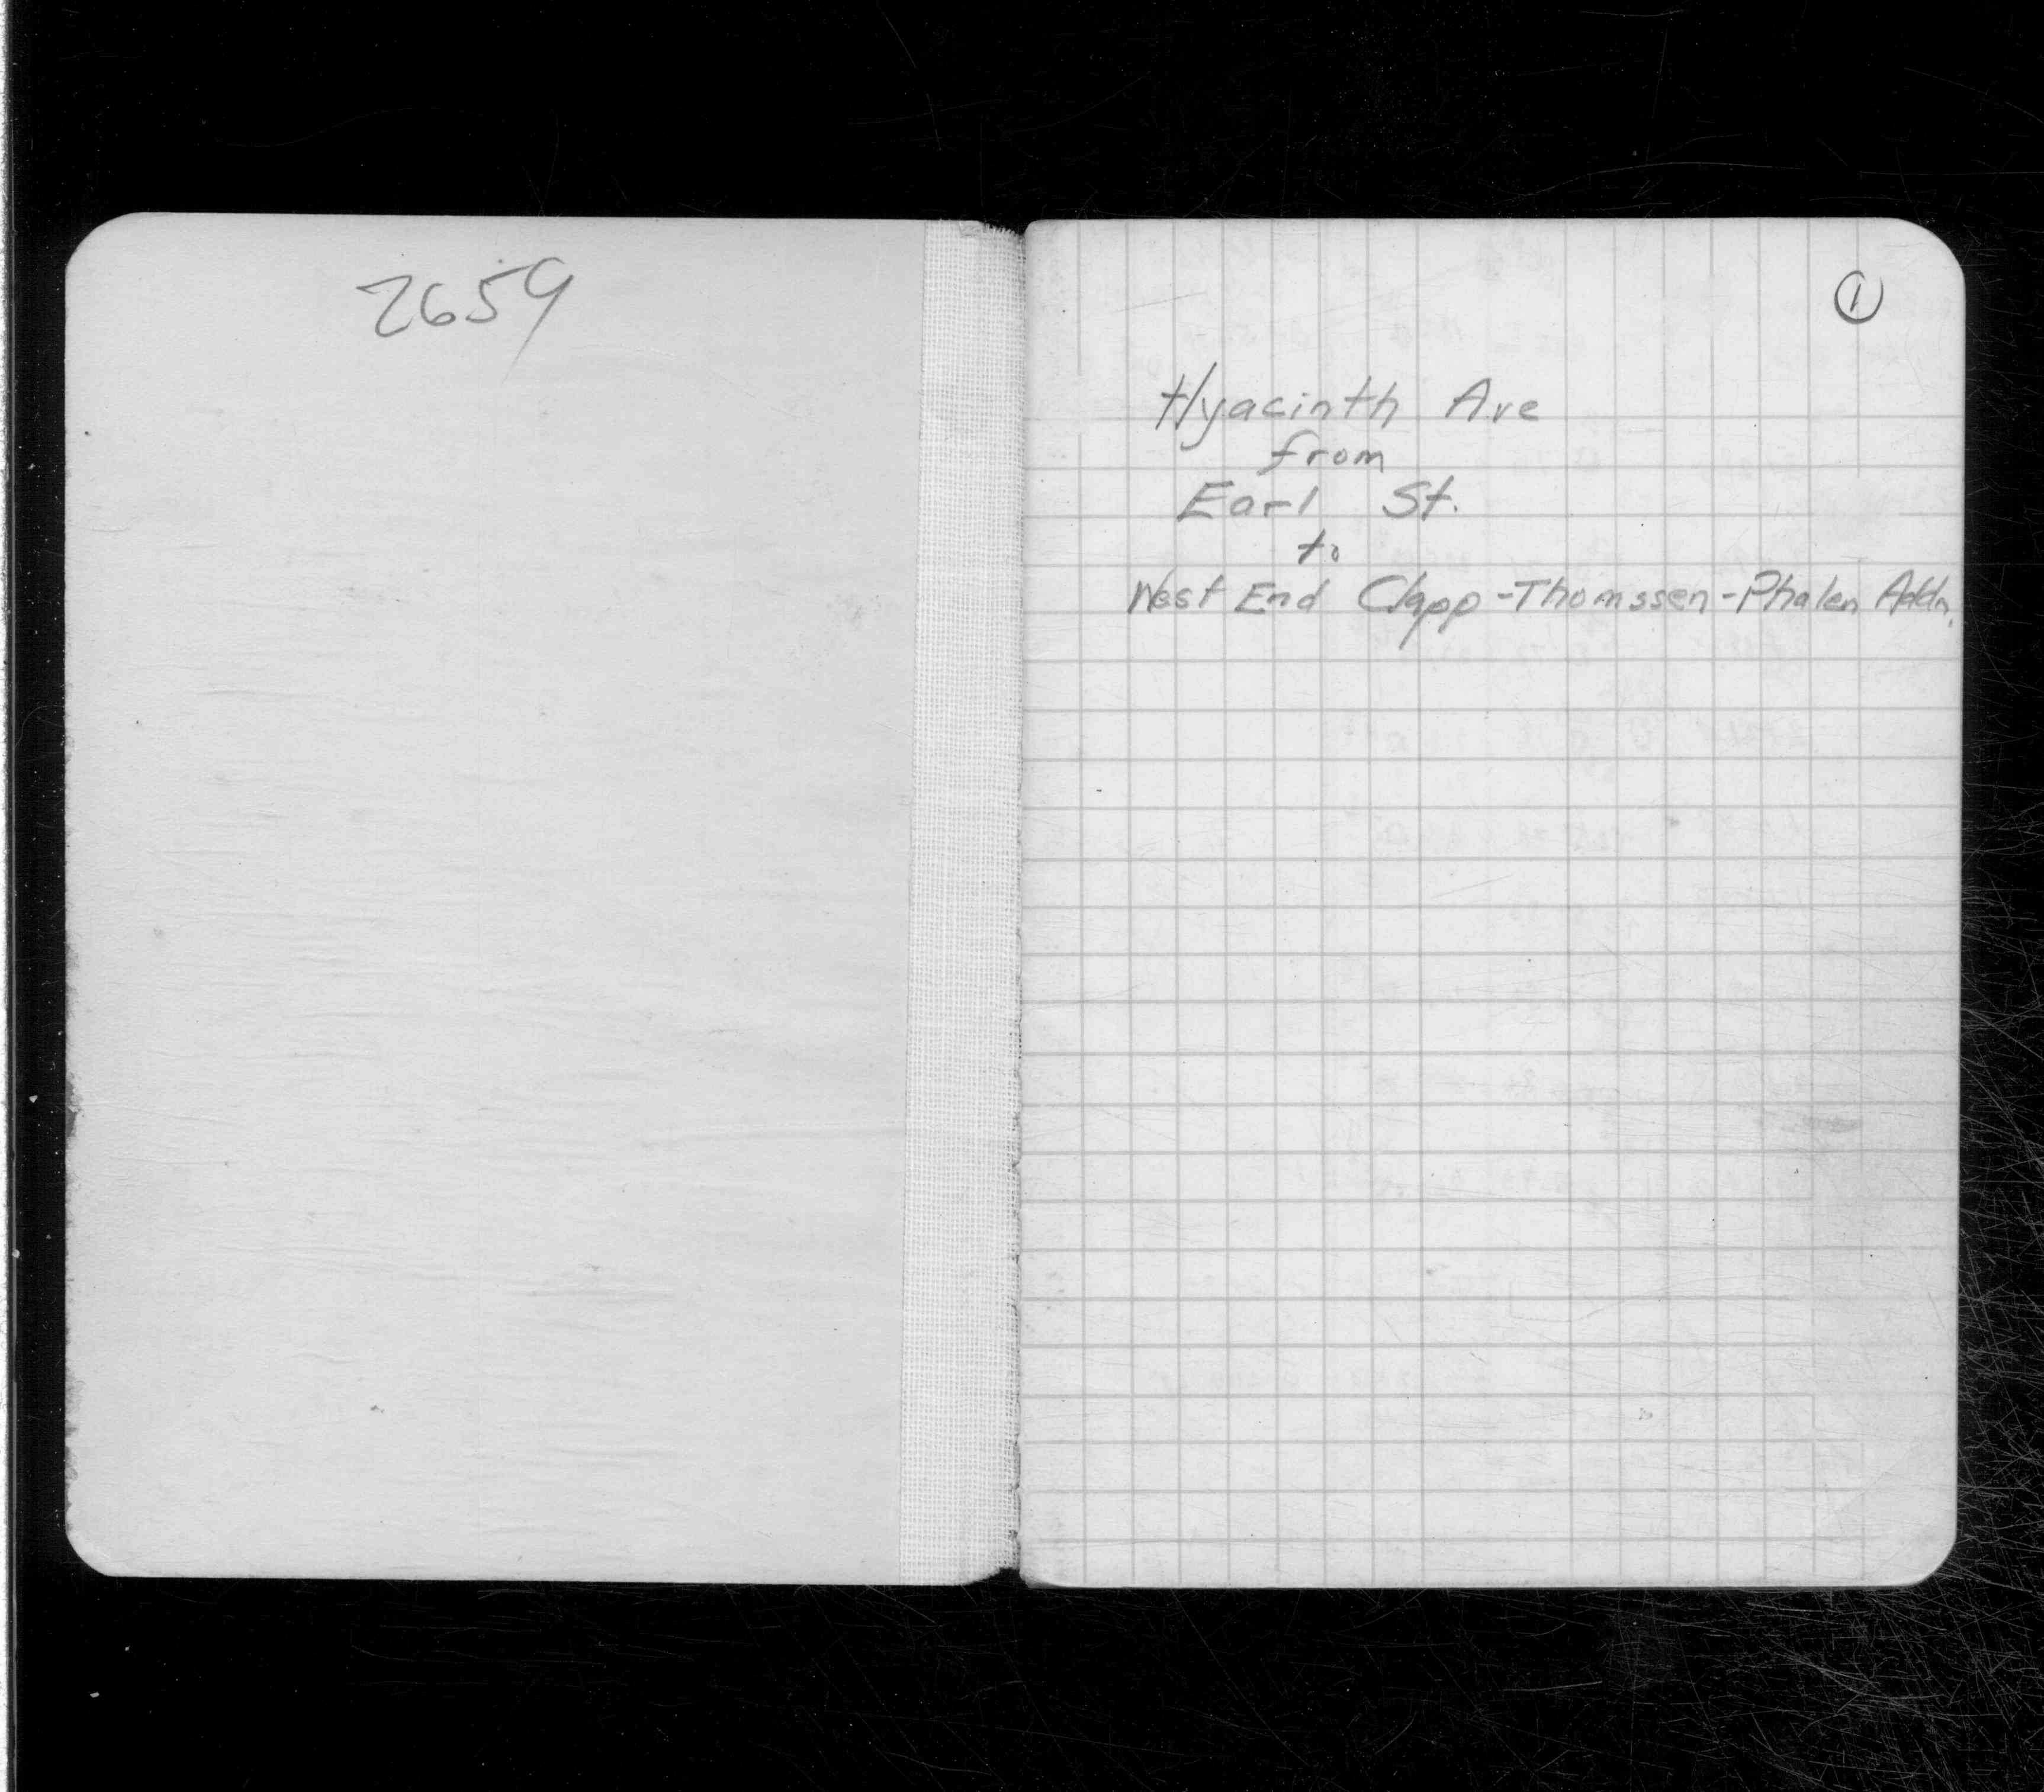 2659
1
Hyacinth Ave
from
Earl St.
to
West End Clapp-Thomssen-Phalen Addn.